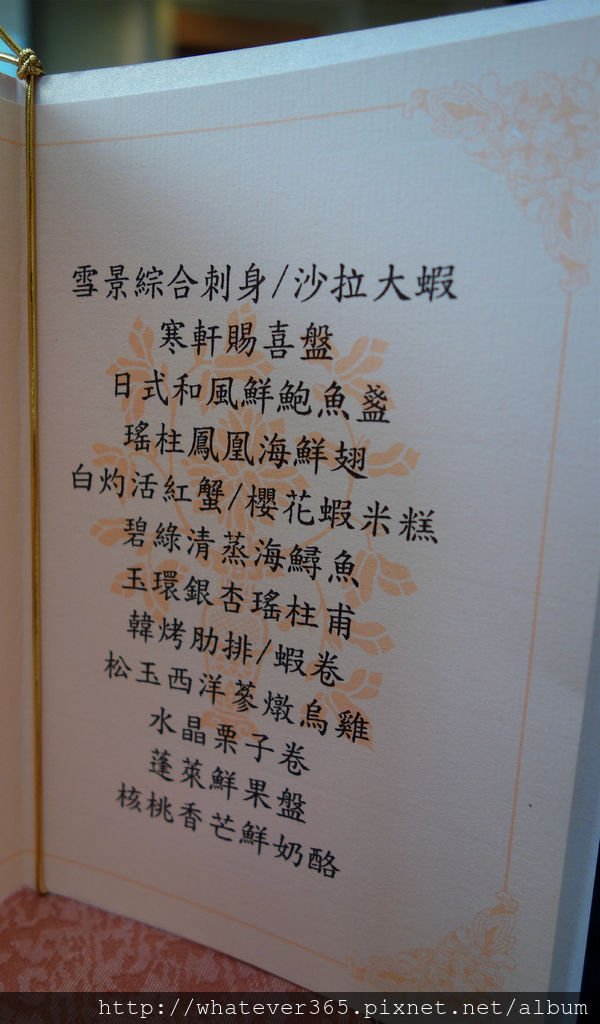 雪景綜合刺身/沙拉大蝦
寒軒賜喜盤
日式和風鮮鮑魚盞
瑤柱鳳凰海鮮翅
白灼活紅蟹/櫻花蝦米糕
碧綠清蒸海鱘魚
玉環銀杏瑤柱甫
韓烤肋排/蝦卷
松玉西洋蔘燉烏雞
水晶栗子卷
蓬萊鮮果盤
核桃香芒鮮奶酪
http://whatever365.pixnet.net/album